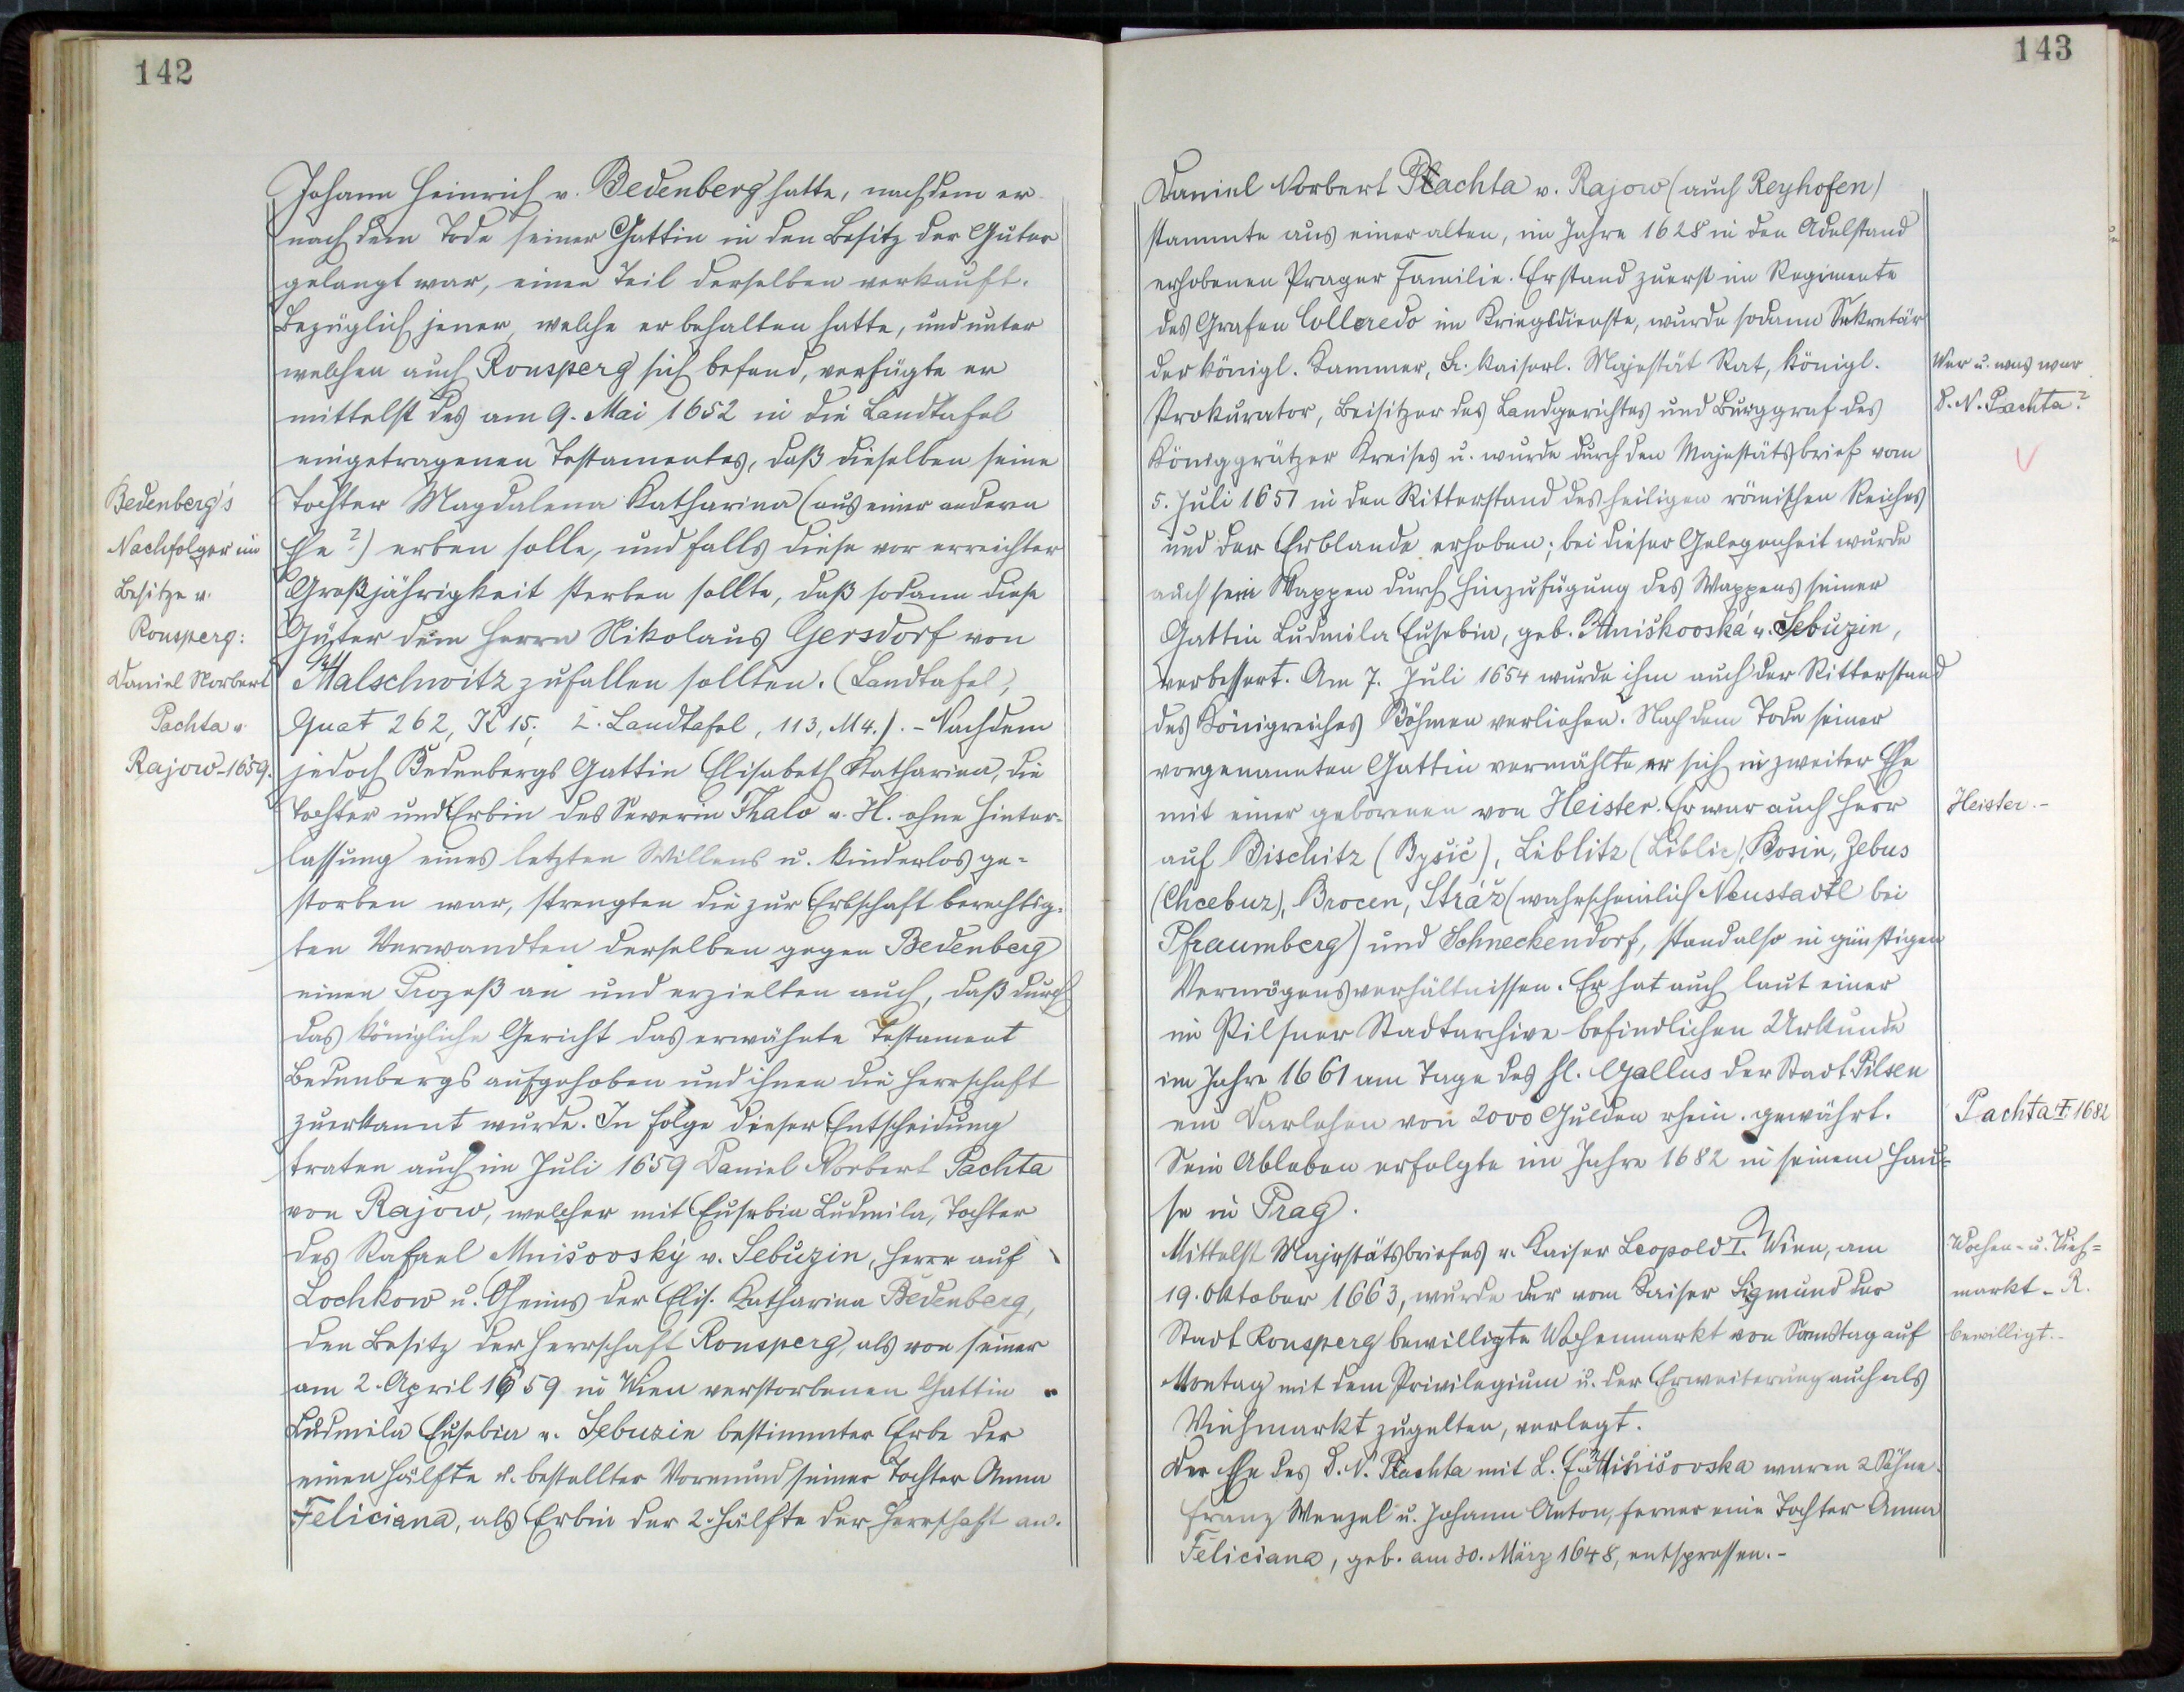 142
Johann Heinrich v. Bedenberg hatte, nachdem er
nach dem Tode seiner Gattin in den Besitz der Güter
gelangt war, einen Teil derselben verkauft.
Bezüglich jener, welche er behalten hatte, und unter
welchen auch Ronsperg sich befand, verfügte er
mittelst des am 9. Mai 1652 in die Landtafel
eingetragenen Testamentes, daß dieselben seine
Tochter Magdalena Katharina (aus einer andern
Ehe?) erben solle, und falls diese vor erreichter
Großjährigkeit sterben sollte, daß sodann diese
Güter dem Herrn Nikolaus Gersdorf von
Malschwitz zufallen sollten. (Landtafel,
Quat 262, K 15; L. Landtafel, 113, M4.). - Nachdem
jedoch Bedenbergs Gattin Elisabeth Katharina, die
Tochter und Erbin des Severin Thalo v. H. ohne Hinter-
lassung eines letzten Willens u. kinderlos ge-
storben war, strengten die zur Erbschaft berechtig-
ten Verwandten derselben gegen Bedenberg
einen Prozeß an und erzielten auch, daß durch
das königliche Gericht das erwähnte Testament
Bedenbergs aufgehoben und ihnen die Herrschaft
zuerkannt wurde. In Folge dieser Entscheidung
traten auch im Juli 1659 Daniel Norbert Pachta
von Rajow, welcher mit Eusebia Ludmila, Tochter
des Rafael Mnišovský v. Sebuzin, Herrn auf
Lochkow u. Oheims der Elis. Katharina Bedenberg,
den Besitz der Herrschaft Ronsperg, als von seiner
am 2. April 1659 in Wien verstorbenen Gattin
Ludmila Eusebia v. Sebuzin bestimmter Erbe der
einen Hälfte u. bestellter Vormund seiner Tochter Anna
Feliciana, als Erbin der 2. Hälfte der Herrschaft an.
Bedenberg's
Nachfolger im
Besitze v.
Ronsperg:
Daniel Norbert
Pachta v.
Rajow-1659.
143
Daniel Norbert Pachta v. Rajow (auch Reyhofen)
stammte aus einer alten, im Jahre 1628 in den Adelstand
erhobenen Prager Familie. Er stand zuerst im Regimente
des Grafen Colloredo im Kriegsdienste, wurde sodann Sekretär
der königl. Kammer, Sr. kaiserl. Majestät Rat, königl.
Prokurator, Beisitzer des Landgerichtes und Burggraf des
Königgrätzer Kreises u. wurde durch den Majestätsbrief vom
5. Juli 1651 in den Ritterstand des heiligen römischen Reiches
und der Erblande erhoben; bei dieser Gelegenheit wurde
auch sein Wappen durch Hinzufügung des Wappens seiner
Gattin Ludmila Eusebia, geb. Mniškovská v. Sebuzin,
verbessert. Am 7. Juli 1654 wurde ihm auch der Ritterstand
des Königreiches Böhmen verliehen. Nach dem Tode seiner
vorgenannten Gattin vermählte er sich in zweiter Ehe
mit einer geborenen von Heister. Er war auch Herr
auf Bischitz (Byšic), Liblitz (Liblic), Kosin, Zebus
(Chcebuz), Brocen, Stráž (wahrscheinlich Neustadtl bei
Pfraumberg) und Schneckendorf, stand also in günstigen
Vermögensverhältnissen. Er hat auch laut einer
im Pilsner Stadtarchive befindlichen Urkunde
im Jahre 1661 am Tage des hl. Gallus der Stadt Pilsen
ein Darlehen von 2000 Gulden rhein. gewährt.
Sein Ableben erfolgte im Jahre 1682 in seinem Hau-
se in Prag.
Mittelst Majestätsbriefes v. Kaiser Leopold I. Wien, am
19. Oktober 1663, wurde der vom Kaiser Sigmund der
Stadt Ronsperg bewilligte Wochenmarkt von Samstag auf
Montag mit dem Privilegium u. der Erweiterung auch als
Viehmarkt zu gelten, verlegt.
Der Ehe des D. N. Pachta mit L. E. Mnišovska waren 2 Söhne
Franz Wenzel u. Johann Anton, ferner eine Tochter Anna
Feliciana, geb. am 30. März 1648, entsprossen. -
Wer u. was war
D. N. Pachta?
Heister. -
Pachta † 1682
Wochen- u. Vieh-
markt - R.
bewilligt. -